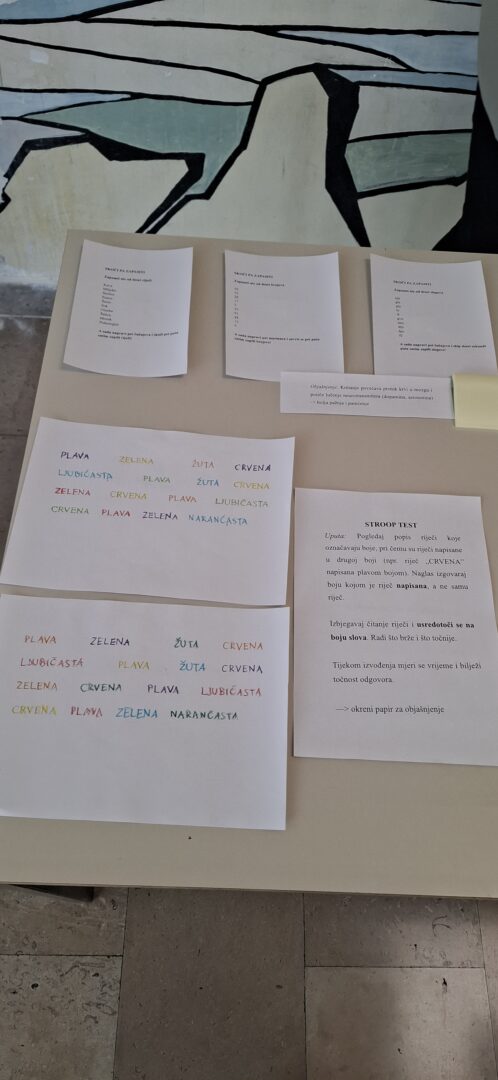 SKOČI PA ZAPAMTI
Zapamti što od deset riječi
SKOČI PA ZAPAMTI
Zapamti što od deset brojeva
SKOČI PA ZAPAMTI
Zapamti što od deset slogova
Objašnjenje: Kretanje povećava protok krvi u mozgu i
potiče lučenje neurotransmitera (dopamina, serotonina)
—> bolja pažnja i pamćenje
PLAVA ZELENA ŽUTA CRVENA
LJUBIČASTA PLAVA ŽUTA CRVENA
ZELENA CRVENA PLAVA LJUBIČASTA
CRVENA PLAVA ZELENA NARANČASTA
PLAVA ZELENA ŽUTA CRVENA
LJUBIČASTA PLAVA ŽUTA CRVENA
ZELENA CRVENA PLAVA LJUBIČASTA
CRVENA PLAVA ZELENA NARANČASTA
STROOP TEST
Uputa: Pogledaj popis riječi koje
označavaju boje, pri čemu su riječi napisane
u drugoj boji (npr. riječ „CRVENA"
napisana plavom bojom). Naglas izgovaraj
boju kojom je riječ napisana, a ne samu
riječ.
Izbjegavaj čitanje riječi i usredotoči se na
boju slova. Radi što brže i što točnije.
Tijekom izvođenja mjeri se vrijeme i bilježi
točnost odgovora.
—> okreni papir za objašnjenje